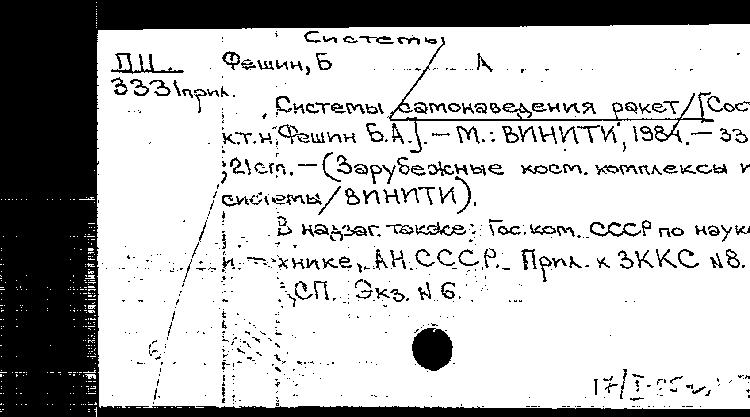 Системы
П11 Фешин, Б А
3331прил.
Системы самонаведения ракет/[Сос
к.т.н. Фешин Б.А.]. – М.: ВИНИТИ, 1984. – 33
; 21cm. – (Зарубежные косм. комплексы и
системы/ВИНИТИ).
В надзаг. также: Гос. ком. СССР по наук
и технике, АН СССР. Прил. к ЗККС N8.
СП. Экз. N 6.
6
17/I-85г.